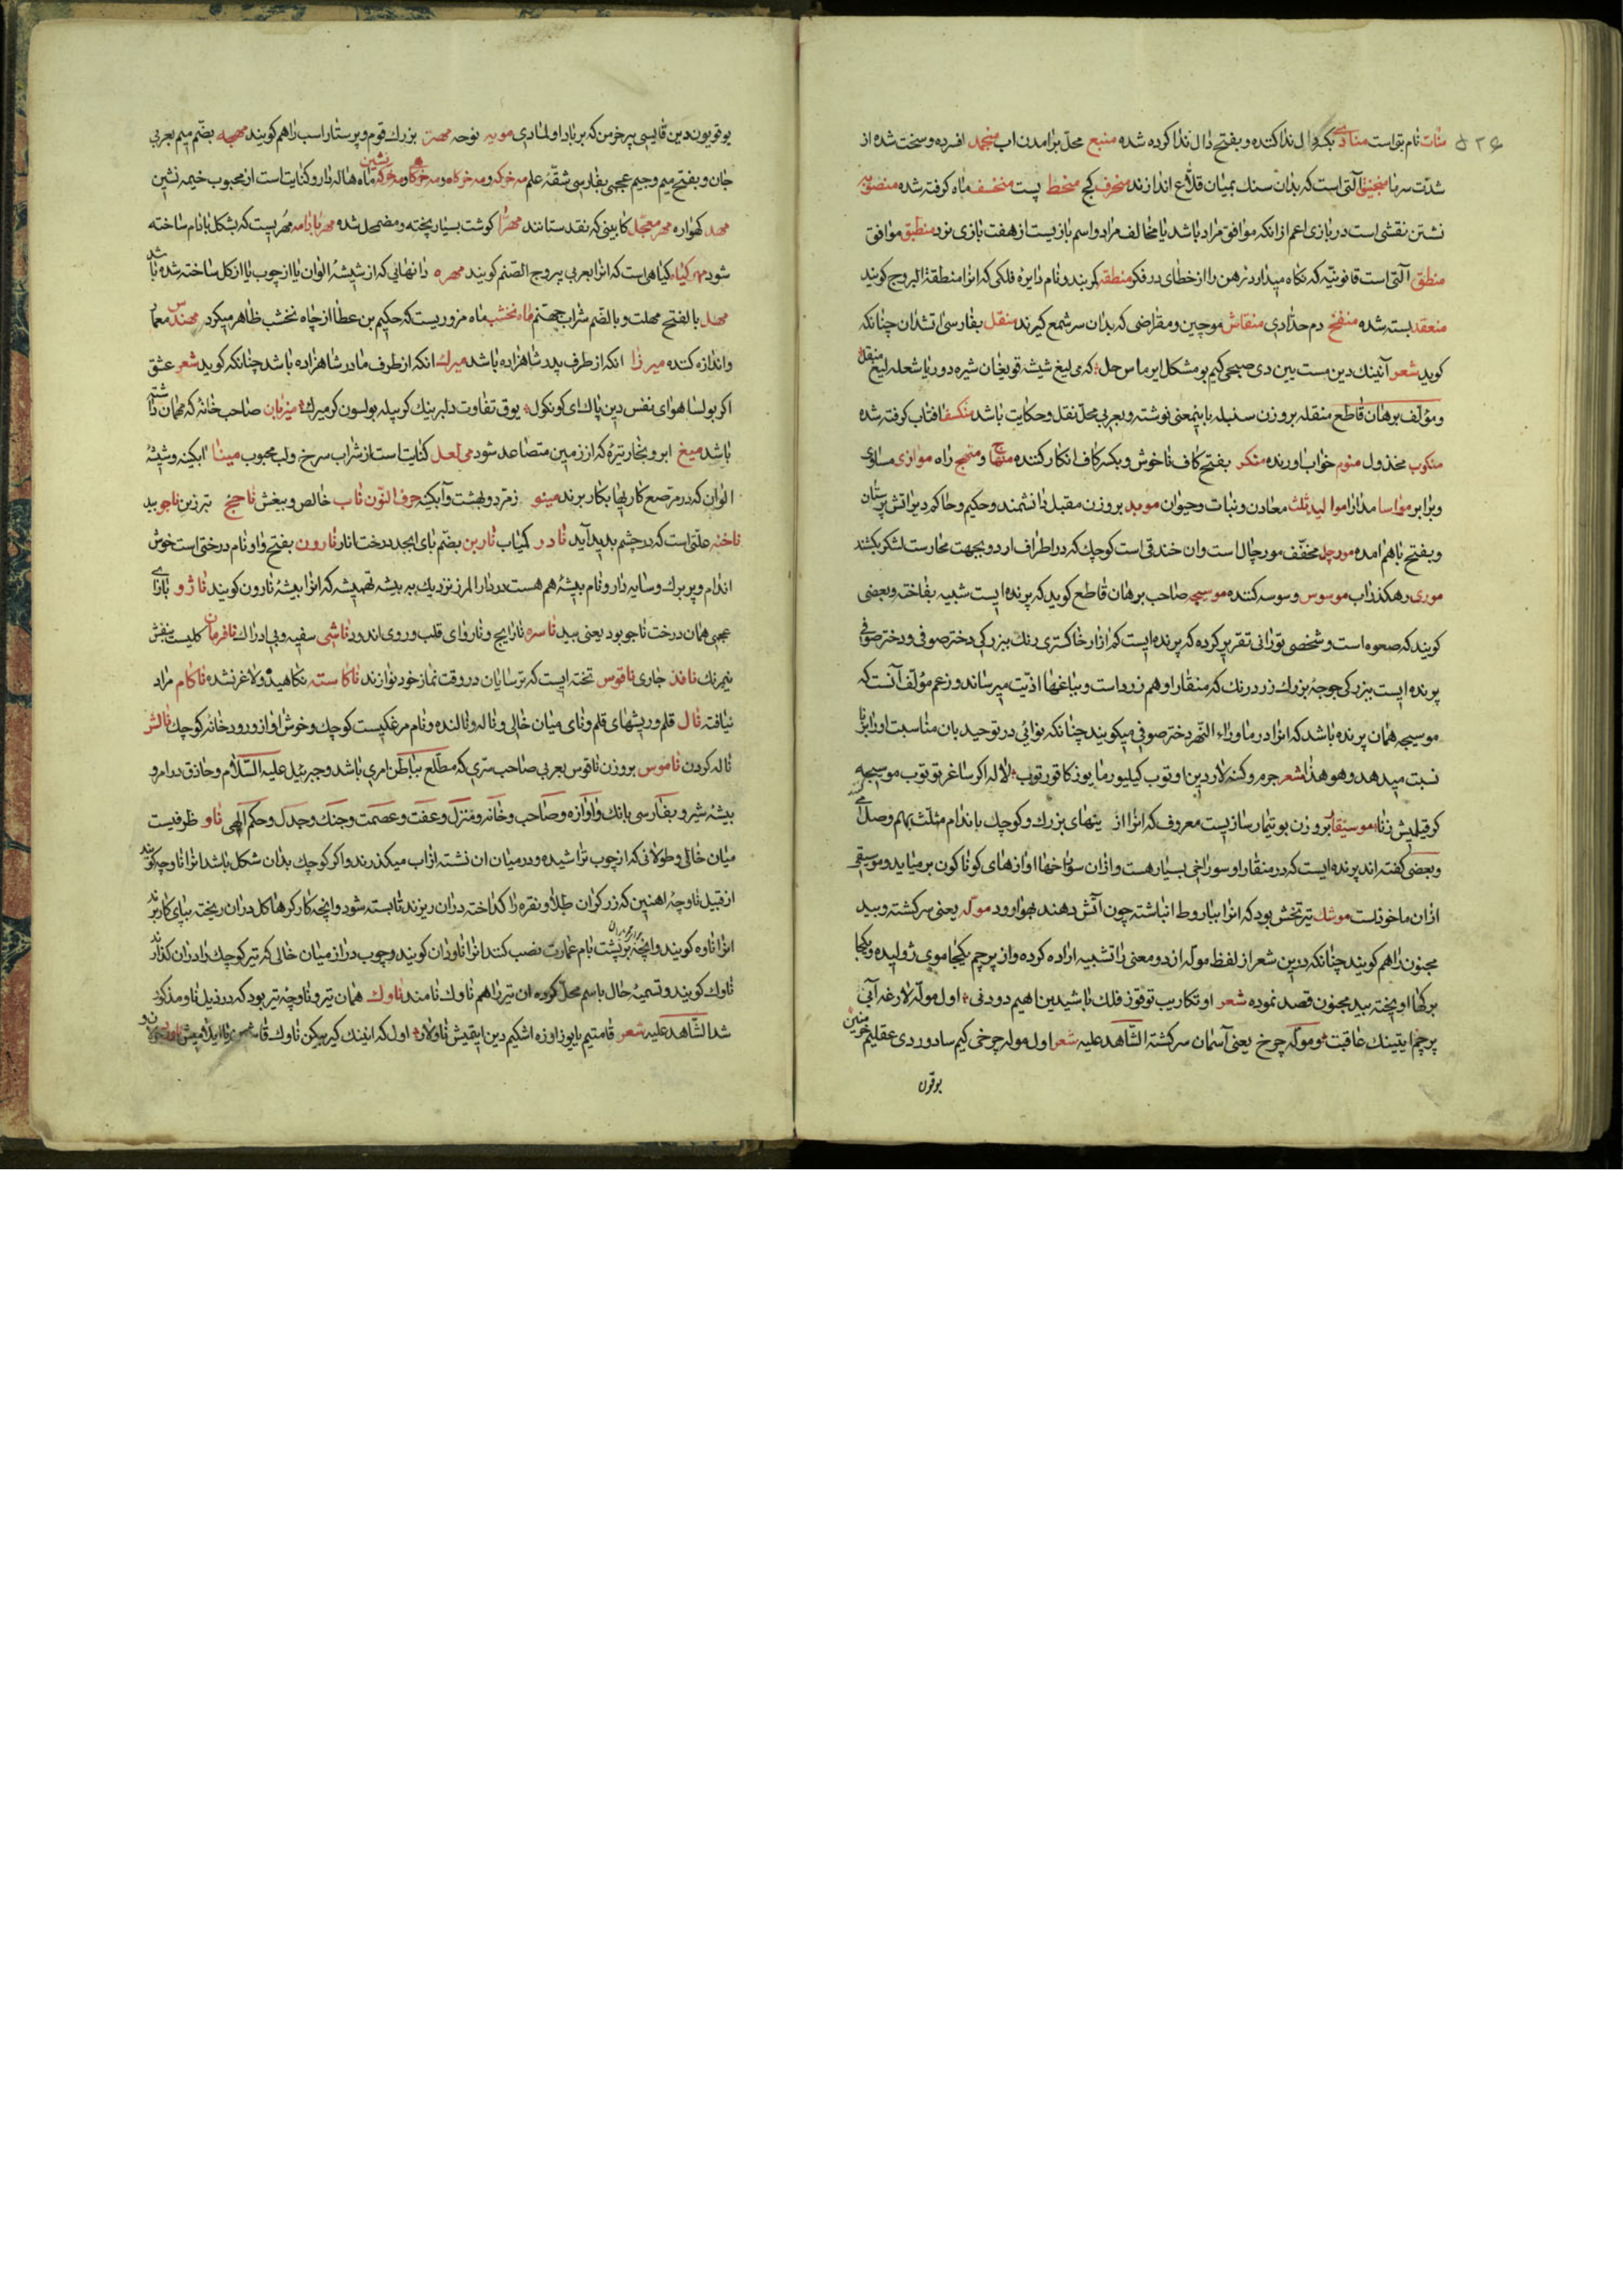 منات نام بتی است منادی بکسر دال ندا کننده و بفتح دال ندا کرده شده منبع محل برآمدن آب منجمد افسرده و سخت شده از
شدت سرما منجنیق آلتی است که بدان سنك بمیان قلاع اندازند منحرف کج منحط پست منخسف ماه کرفته شده منصوبه
نشتن نقشی است در بازی اعم از انکه موافق مراد باشد یا مخالف مراد و اسم بازیست از هفت بازی نرد منطبق موافق
منطق آلتی است قانونیه که نکاه میدارد ذهن را از خطای در فکر منطقه کمربند و نام دایره فلکی که انرا منطقة البروج کویند
منعقد بسته شده منفخ دم حدادی منقاش موچین و مقراضی که بدان سر شمع کیرند منقل بفارسی اتشدان چنانکه
کوید شعر آنینك دین مست بین دی صبحی کیم بو مشکل ایرماس حل که می لیغ شیشه قویغان شیره دور یا شعله لیغ منقل
و مؤلف برهان قاطع منقله بر وزن سنبله باینمعنی نوشته و بعربی محل نقل و حکایت باشد منکسف افتاب کرفته شده
منکوب مخذول منوم خواب اورنده منکر بفتح کاف ناخوش و بکسر کاف انکار کننده منهاج و منهج راه موازی مساوی
و برابر مواسا مدارا موالید ثلث معادن و نبات و حیوان موبد بر وزن مقبل دانشمند و حکیم و حاکم دیر اتش پرستان
و بفتح با هم امده مورچل مخفف مورچال است و ان خندقی است کوچك که در اطراف اردو بجهت محارست لشکر بکشند
موری رهکذر اب موسوس وسوسه کننده موسیچه صاحب برهان قاطع کوید که پرنده ایست شبیه بفاخته و بعضی
کویند که صعوه است و شخصی تورانی تقریر کرده که پرنده ایست کم ازار خاکستری رنك ببزرکی دختر صوفی و دختر صوفی
پرنده ایست ببزرکی جوجه بزرك زرد رنك که منقار او هم زرد است و بباغها اذیت میرساند و زعم مؤلف آنست که
موسیچه همان پرنده باشد که انرا در ماوراء النهر دختر صوفی میکویند چنانکه نوایی در توحید بان مناسبت اورا بزنا
نسبت میدهد و هو هذا شعر
کر قیلمیش زنا موسیقار بر وزن بوتیمار سازیست معروف که انرا از نیهای بزرك و کوچك باندام مثلث بهم وصل
و بعضی کفته اند پرنده ایست که در منقار او سوراخ بسیار هست و ازان سوراخها اوازهای کوناکون بر میاید و موسیقی
ازان ماخوذست موشك تیر تخش بود که انرا بباروط انباشته چون آتش دهند بهوا رود موله یعنی سرکشته و بید
مجنون را هم کویند چنانکه درین شعر از لفظ موله از دو معنی را تشبیه اراده کرده و از پرچم یکجا موی ژولیده و یکجا
برکها اویخته بید مجنون قصد نموده شعر
پرچم ایتینك عاقبت و موله چرخ یعنی آسمان سرکشته الشاهد علیه شعر اول موله چرخی کیم سادور دی عقلیم خرمنین
بوقون
یوقویون دین قایسی پر خرمن که بر باد اولمادی مویه نوحه مهتر بزرك قوم و پرستار اسب را هم کویند مهجه بضم میم بعربی
جان و بفتح میم و جیم عجمی بفارسی شقه علم مه خرکه و مه خرکاه و مه خرکاه و مه خرکه نشین ماه هاله دار و کنایت است از محبوب خیمه نشین
مهد کهواره مهر معجل کابینی که نقد ستانند مهرا کوشت بسیار پخته و مضمحل شده مهر بادامه مهریست که بشکل بادام ساخته
شود مهر کیاه کیاهی است که انرا بعربی یبروج الصنم کویند مهره دانهایی که از شیشه الوان یا از چوب یا از کل ساخته شده باشد
مهل بالفتح مهلت و بالضم شراب جهنم ماه نخشب ماه مزوریست که حکیم بن عطا از چاه نخشب ظاهر میکرد مهندس معمار
و اندازه کننده میرزا انکه از طرف پدر شاهزاده باشد میرك انکه از طرف مادر شاهزاده باشد چنانکه کوید شعر عشق
اکر بولسا هوای نفس دین پاك ای کونکول یوق تفاوت دلبرینك کر بیله بولسون کر میرك میزبان صاحب خانه که مهمان داشته
باشد میغ ابر و بخار تیره که از زمین متصاعد شود می لعل کنایت است از شراب سرخ و لب محبوب مینا ابکینه و شیشه
الوان که در مرصع کاریها بکار برند مینو زمرد و بهشت و آبکینه حرف النون ناب خالص و بیغش ناجخ تبرزین ناجو بید
ناخنه علتی است که در چشم پدید آید نادر کمیاب نارین بضم بای ابجد درخت انار نارون بفتح واو نام درختی است خوش
اندام و پر برك و سایه دار و نام بیشه هم هست در دار المرز نزدیك به بیشه تمیشه که انرا بیشه نارون کویند ناژو بازای
عجمی همان درخت ناجو بود یعنی بید ناسره نارایج و ناروای قلب و روی اندود ناشی سفیه و بی ادراك نافرمان کلیست بنفش
نیم رنك نافذ جاری ناقوس تخته ایست که ترسایان در وقت نماز خود نوازند ناکاسته نکاهیده و لاغر نشده ناکام مراد
نیافته نال قلم و ریشهای قلم و نای میان خالی و ناله و نالنده و نام مرغکیست کوچك و خوش اواز و رودخانه کوچك نالش
ناله کردن ناموس بر وزن ناقوس بعربی صاحب سری که مطلع بباطن امری باشد و جبرئیل علیه السلام و حاذق در امر و
بیشه شیر و بفارسی بانك و آوازه و صاحب و خانه و منزل و عفت و عصمت و جنك و جدل و حکم الهی ناو ظرفیست
میان خالی و طولانی که از چوب تراشیده و در میان ان نشته از اب میکذرند و اکر کوچك بدان شکل باشد انرا ناوچه کویند
از قبیل ناوچه اهنین که زرکران طلا و نقره را کداخته دران ریزند تا بسته شود و انچه کارکرها کل دران ریخته بپای کار برند
انرا ناوه کویند و انچه بر پشت بام عمارت نصب کنند انرا ناودان کویند و چوب دراز میان خالی که تیر کوچك را دران کذارند
ناوك کویند و تسمیه حال باسم محل کرده ان تیر را هم ناوك نامند ناوك همان تیر و ناوچه تیر بود که در ذیل ناو مذکور
شد الشاهد علیه شعر